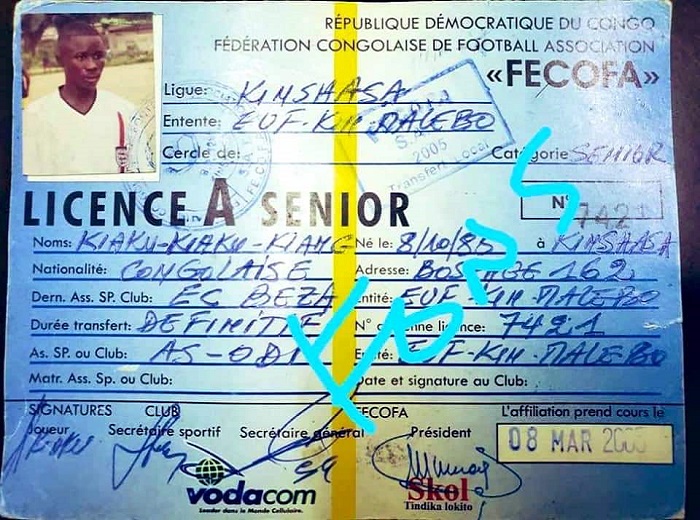 RÉPUBLIQUE DÉMOCRATIQUE DU CONGO
FÉDÉRATION CONGOLAISE DE FOOTBALL ASSOCIATION
«FECOFA»
Ligue: KINSHASA
Entente: EUF-KIN-MALEBO
Cercle de: Catégorie SENIOR
2005
Transfert Local
LICENCE A SENIOR N° 7421
Noms: KIAKU-KIAKU-KIANG Né le: 8/10/85 à KINSHASA
Nationalité: CONGOLAISE Adresse: 162
Dern. Ass. SP. Club: FC BEZA Entité: EUF-KIN-MALEBO
Durée transfert: DEFINITIF N° licence: 7421
As. SP. ou Club: AS-ODI EUF-KIN-MALEBO
Matr. Ass. Sp. ou Club: Date et signature au Club:
SIGNATURES CLUB FECOFA L'affiliation prend cours le
Joueur Secrétaire sportif Secrétaire général Président 08 MAR
vodacom
Leader dans le Monde Cellulaire.
Skol
Tindika lokito